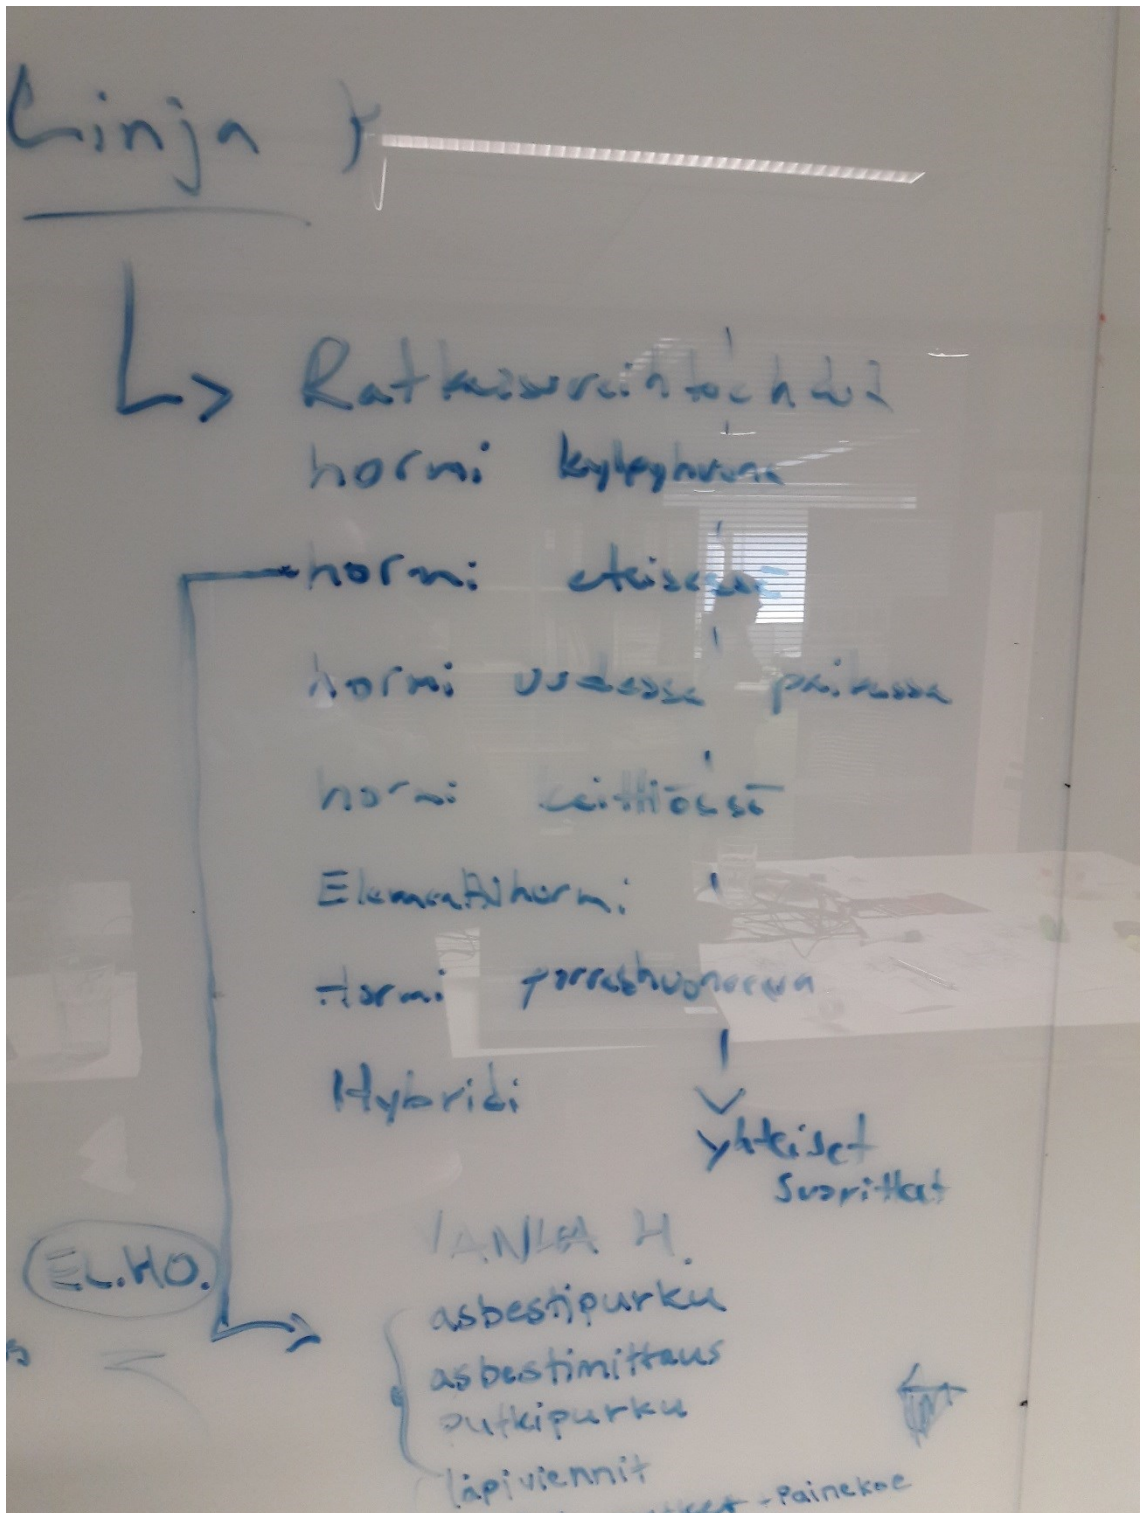 Linja
Ratkaisuvaihtoehdot
hormi kylpyhuone
hormi eteisessä
hormi uudessa paikassa
hormi keittiössä
Elementtihormi
Hormi porrashuoneessa
Hybridi
yhteiset
suoritteet
VANHA H.
EL.HO.
asbestipurku
asbestimittaus
putkipurku
läpiviennit
- Painekoe